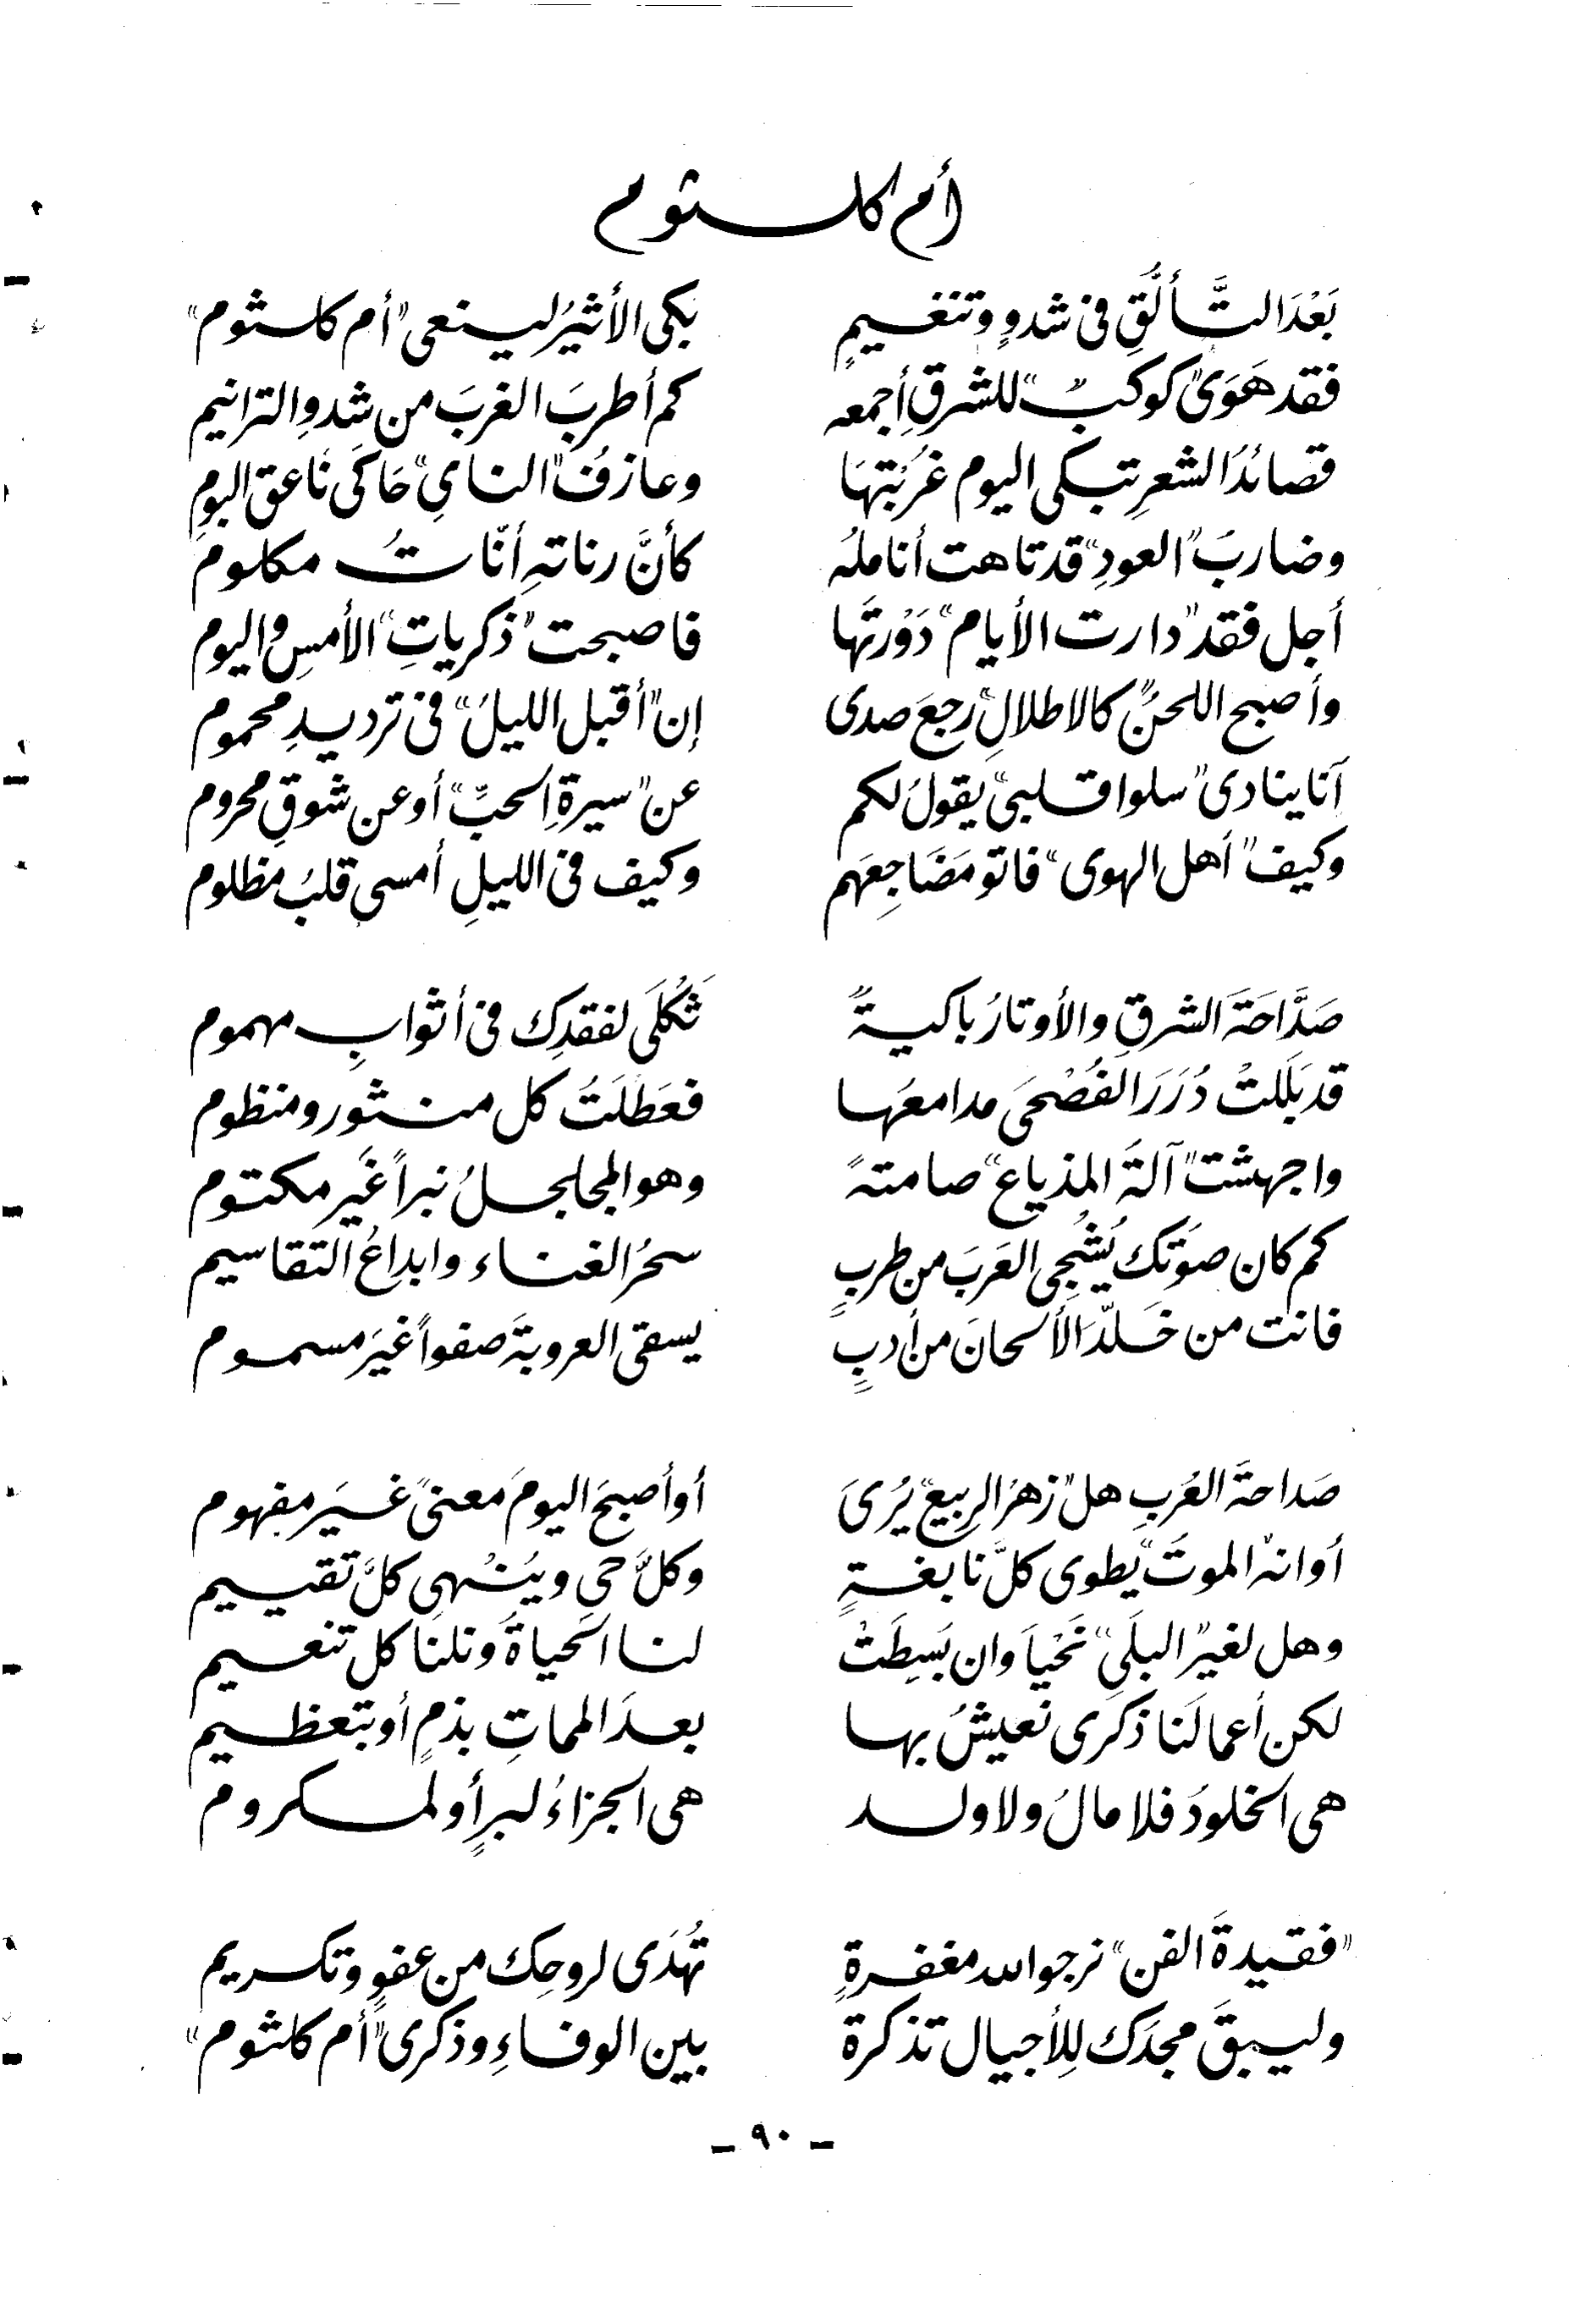 أم كلثوم
بَعْدَ التَّألُّقِ في شدوٍ وتنغيمٍ بكى الأثيرُ لينعى "أم كلثوم"
فقد هَوَى "كوكبٌ" للشرقِ أجمعه كم أطربَ الغربَ من شدوِ الترانيم
قصائدُ الشعرِ تبكى اليوم غُربُتهَا وعازفُ "الناىِ" حَاكَى نَاعق البومِ
وضاربُ "العودِ" قد تاهت أناملُه كأنَّ رناتهِ أنّاتُ مكلوم
أجل فقد "دارت الأيام" دَوْرتَها فاصبحت "ذكرياتِ" الأمسِ واليوم
وأصبح اللحنُ "كالاطلالِ" رجعَ صدى إن "أقبل الليلُ" في ترديدِ محموم
آنا ينادى "سلوا قلبى" يقولُ لكم عن "سيرةِ الحبِّ" أوعن شوقِ محروم
وكيف "أهل الهوى" فاتو مَضَاجِعَهم وكيف في الليلِ أمسى قلبُ مظلوم
صَدَّاحَةَ الشرقِ والأوتارُ باكيةً ثَكْلَى لفقدِك في أثوابِ مهموم
قد بَلَلتْ دُرَرَ الفُصْحَى مدامعَها فعَطَلَتُ كل منثور ومنظوم
واجهشت "آلةُ المذياع" صامتةً وهو المجلجلُ نبراً غَير مكتوم
كم كان صوتَك يُشْجِى العَربَ من طربٍ سحرُ الغناء وابداعُ التقاسيم
فانت من خَلَّدَ الألحانَ من أدبٍ يسقى العروبةَ صفواً غيَر مسموم
صَداحةَ العُربِ هل "زهرُ الربيع" يُرىَ أو أصبحَ اليومَ معنىً غيَر مفهوم
أو انه "الموتُ" يطوى كلَّ نابغةٍ وكلَّ حي ويُنْهى كلَّ تقييم
وهل لغير "البلَى" نَحْياَ وان بَسِطَتْ لنا الحياةَ ونلنا كل تنعيم
لكن أعمالَنا ذكرى نعيشُ بها بعدَ المماتِ بذمٍ أو بتعظيم
هى الخلودُ فلا مالُ ولا ولد هى الجزاءُ لبرٍ أو لمكروم
"فقيدةَ الفن" نرجوالله مغفرةٍ تُهدَى لروحِك من عفوٍ وتكريم
وليبقَ مجدَك لِلأجيال تذكرة بين الوفاءِ وذكرى "أم كلثوم"
- ٩٠ -